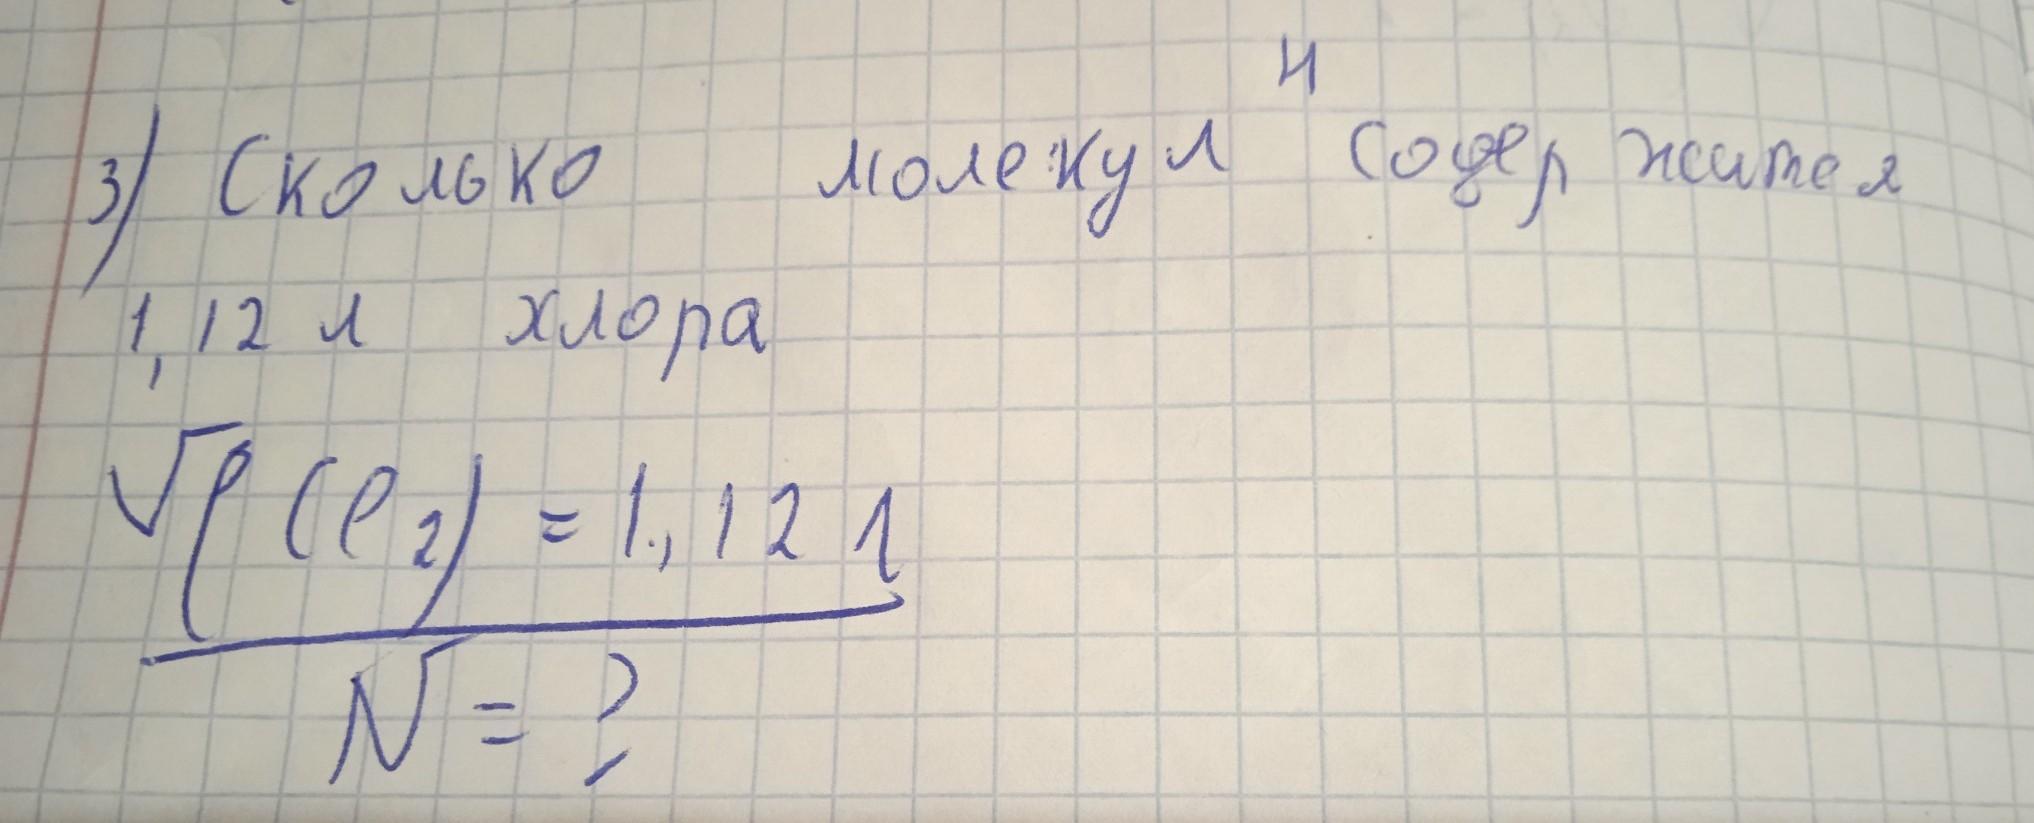 ч
3) Сколько молекул содержится
1,12 л хлора
V(Cl2) = 1,12 л
N = ?